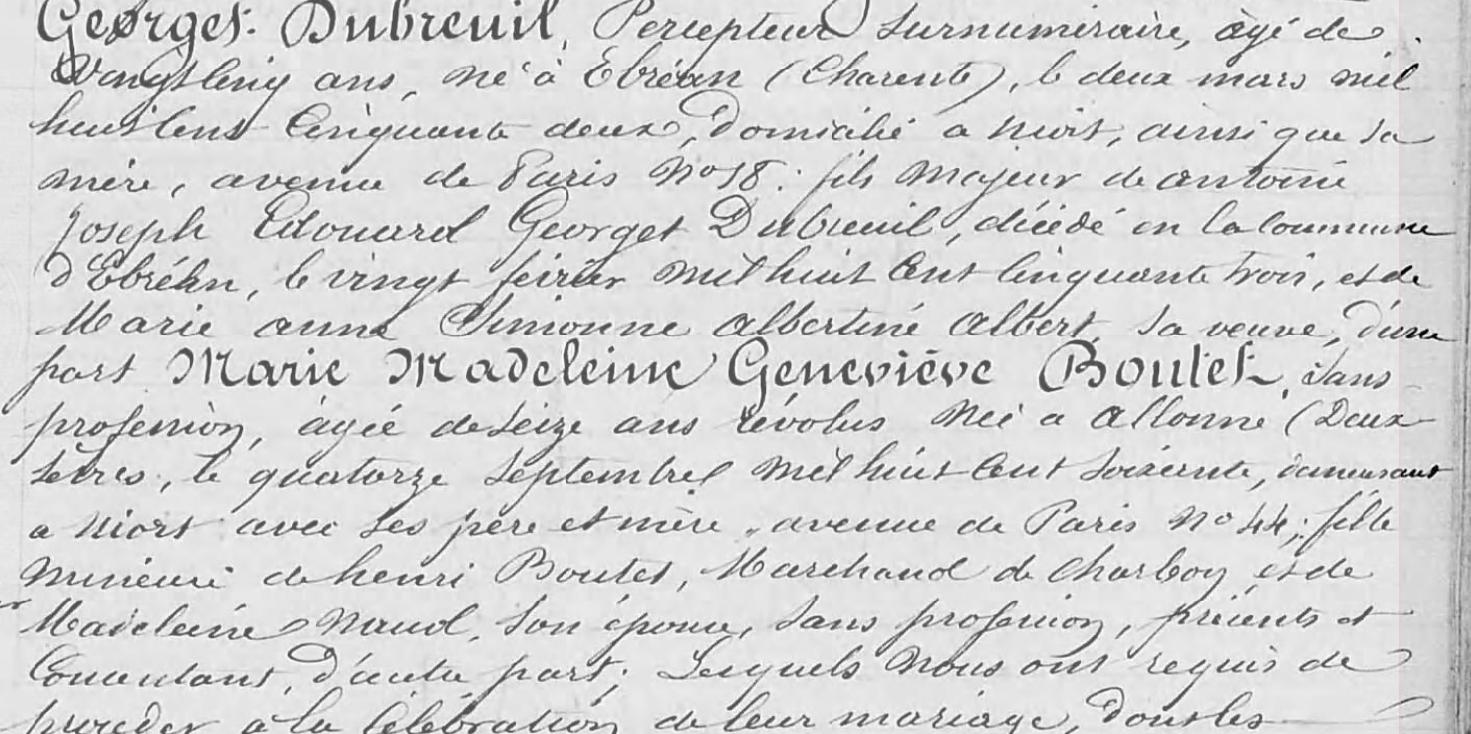 Georget Dubreuil, Percepteur surnuméraire, âgé de
vingt cinq ans, né à Ebréon (Charente), le deux mars mil
huit cent cinquante deux, domicilié a Niort, ainsi que sa
mère, avenue de Paris No 18 ; fils majeur de antoine
Joseph Edouard Georget Dubreuil, décédé en la commune
d'Ebréon, le vingt février mil huit cent cinquante trois, et de
Marie anne Simonne albertine albert, sa veuve, d'une
part Marie Madeleine Geneviève Boutet, sans
profession, âgée de seize ans révolus née a allonne (Deux
sèvres, le quatorze septembre mil huit cent soixante, demeurant
a Niort avec ses père et mère, avenue de Paris No 44 ; fille
mineure de henri Boutet, Marchand de charbon et de
Madeleine Naud, son épouse, sans profession, présents et
consentant, d'autre part ; Lesquels nous ont requis de
procéder à la célébration de leur mariage, dont les